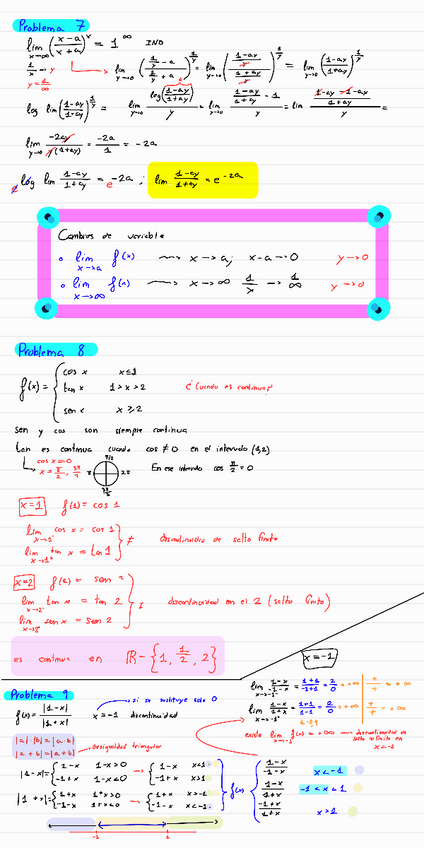 Problema 7
lim x→∞ (x-a / x+a)^x = 1^∞ IND
1/x → y
y = 1/∞
lim y→0 (1/y - a / 1/y + a)^1/y = lim y→0 (1-ay/y / 1+ay/y)^1/y = lim y→0 (1-ay / 1+ay)^1/y
log lim (1-ay / 1+ay)^1/y = lim y→0 log(1-ay / 1+ay) / y = lim y→0 1-ay / 1+ay - 1 / y = lim 1-ay-1-ay / 1+ay / y =
lim y→0 -2ay / y(1+ay) = -2a / 1 = -2a
log lim 1-ay / 1+ay = e -2a ; lim 1-ay / 1+ay = e^-2a
Cambios de variable
lim x→a f(x) x→a; x-a→0 y→0
lim x→∞ f(x) x→∞ 1/x → 1/∞ y→0
Problema 8
f(x) = { cos x x≤1
tan x 1>x>2 ¿Cuando es continua?
sen x x≥2
sen y cos son siempre continua
tan es continua cuando cos ≠ 0 en el intervalo (1,2)
cos x = 0
En ese intervalo cos π/2 = 0
x=1 f(1) = cos 1
lim x→1⁻ cos x = cos 1
lim x→1⁺ tan x = tan 1 } ≠ discontinuidad de salto finito
x=2 f(2) = sen 2
lim x→2⁻ tan x = tan 2
lim x→2⁺ sen x = sen 2 } ≠ discontinuidad en el 2 (salto finito)
es continua en R - {1, 1/2, 2}
Problema 9
f(x) = |1-x| / |1+x| x = -1 discontinuidad
si se sustituye sale 0
|a|·|b| = |a·b|
|a+b| = |a+b| desigualdad triangular
x=-1
existe lim x→-1 f(x) = +∞
|1-x| = { 1-x 1-x>0
-1+x 1-x<0 → { 1-x x<1
-1+x x>1
|1+x| = { 1+x 1+x>0
-1-x 1+x<0 → { 1+x x>-1
-1-x x<-1
f(x) { 1-x / -1-x x<-1
1-x / 1+x -1<x<1
-1+x / 1+x x>1
-1 1